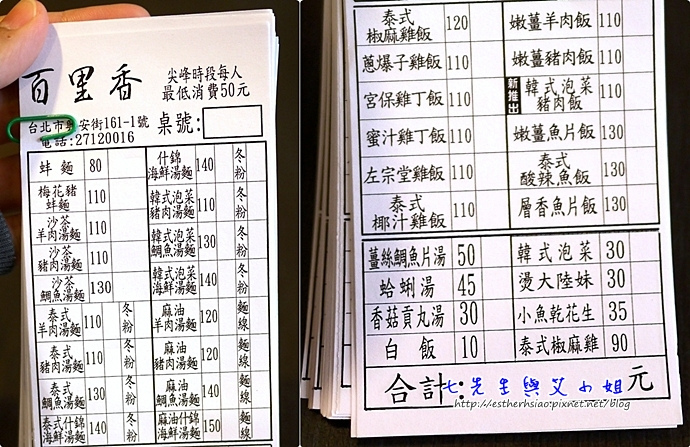 百里香
尖峰時段每人
最低消費50元
台北市興安街161-1號
電話:27120016
桌號:
蚌麵 80
什錦海鮮湯麵 140 冬粉
梅花豬蚌麵 110
韓式泡菜豬肉湯麵 110 冬粉
沙茶羊肉湯麵 110
韓式泡菜鯛魚湯麵 130 冬粉
沙茶豬肉湯麵 110
韓式泡菜海鮮湯麵 140 冬粉
沙茶鯛魚湯麵 130
泰式羊肉湯麵 110 冬粉
麻油羊肉湯麵 120 麵線
泰式豬肉湯麵 110 冬粉
麻油豬肉湯麵 120 麵線
泰式鯛魚湯麵 130 冬粉
麻油鯛魚湯麵 140 麵線
泰式什錦海鮮湯麵 140 冬粉
麻油什錦海鮮湯麵 150 麵線
泰式椒麻雞飯 120
嫩薑羊肉飯 110
蔥爆子雞飯 110
嫩薑豬肉飯 110
宮保雞丁飯 110
新推出 韓式泡菜豬肉飯 110
蜜汁雞丁飯 110
嫩薑魚片飯 130
左宗堂雞飯 110
泰式酸辣魚飯 130
泰式椰汁雞飯 110
層香魚片飯 130
薑絲鯛魚片湯 50
韓式泡菜 30
蛤蜊湯 45
燙大陸妹 30
香菇貢丸湯 30
小魚乾花生 35
白飯 10
泰式椒麻雞 90
合計: 元
七先生與艾小姐
http://estherhsiao.pixnet.net/blog